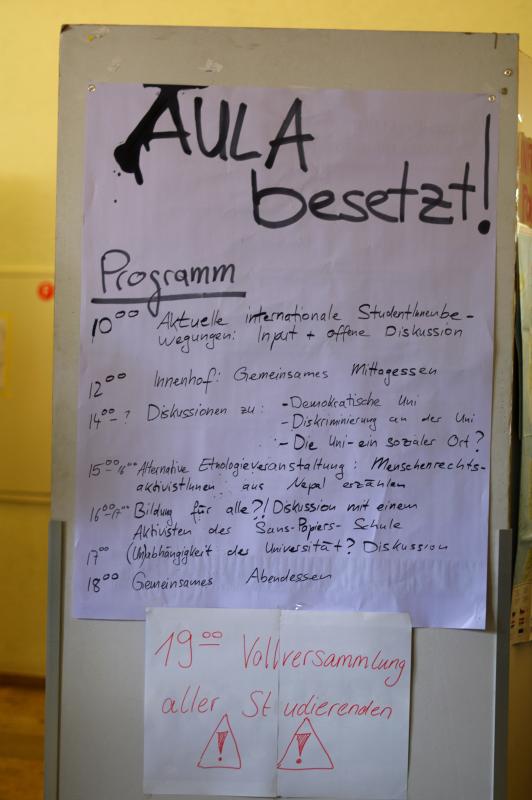 AULA
besetzt!
Programm
10⁰⁰ Aktuelle internationale StudentInnenbe-
wegungen: Input + offene Diskussion
12⁰⁰ Innenhof: Gemeinsames Mittagessen
14⁰⁰-? Diskussionen zu: - Demokratische Uni
- Diskriminierung an der Uni
- Die Uni - ein sozialer Ort?
15⁰⁰-16⁰⁰ Alternative Etnologieveranstaltung: Menschenrechts-
aktivistInnen aus Nepal erzählen
16⁰⁰-17⁰⁰ Bildung für alle?! Diskussion mit einem
Aktivisten des Sans-Papiers-Schule
17⁰⁰ (Un)abhängigkeit der Universität? Diskussion
18⁰⁰ Gemeinsames Abendessen
19⁰⁰ Vollversammlung
aller Studierenden
! !